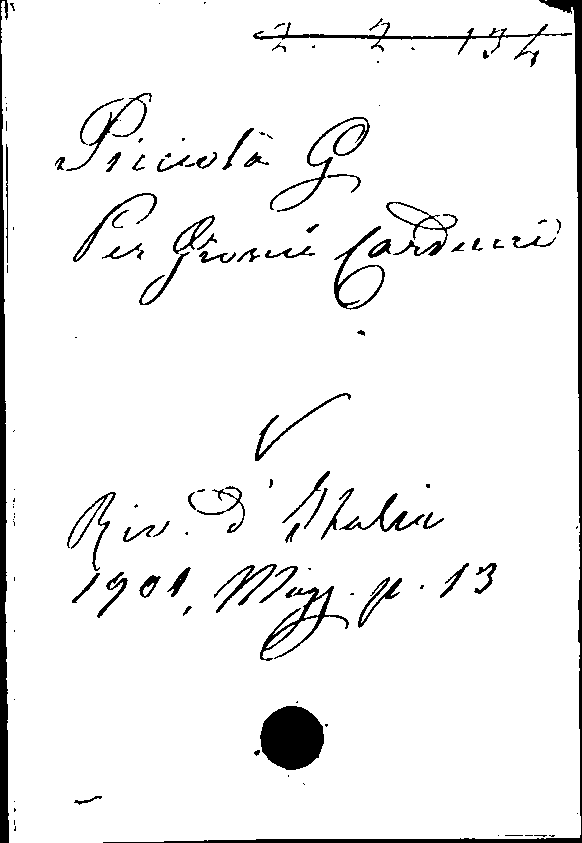 2. 2. 134
Picciola G
Per Giosuè Carducci
V
Riv. d'Italia
1901, Magg. p. 13